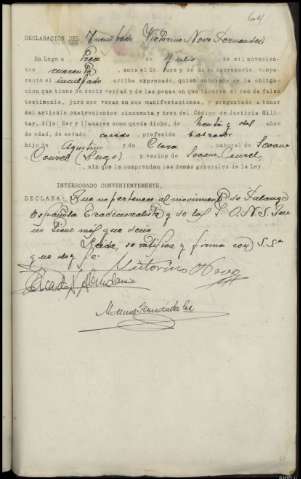 64
DECLARACION DEL Inculpado Victorino Novo Fernandez
En Lugo a Trece de Julio de mil novecien-
tos cuarenta, ante el Sr Juez y de mi el Secretario, compa-
reció el inculpado arriba expresado, quien enterado de la obliga-
ción que tiene de decir verdad y de las penas en que incurre el reo de falso
testimonio, juró ser veraz en sus manifestaciones, y preguntado a tenor
del artículo cuatrocientos cincuenta y tres del Código de Justicia Mili-
tar, dijo: Ser y llamarse como queda dicho, de treinta y dos años
de edad, de estado casado, profesión labrador
hijo de Agustin y de Clara, natural de Seoane
Courel (Lugo) y vecino de Seoane Courel,
sin que le comprendan las demás generales de la Ley
INTERROGADO CONVENIENTEMENTE.
DECLARA: Que no pertenece al movimiento de Falange
Española Tradicionalista y de las J.O.N.S.
tiene mas que decir
Leida, se ratifica y firma con S.Sª
que doy fé
Victorino Novo